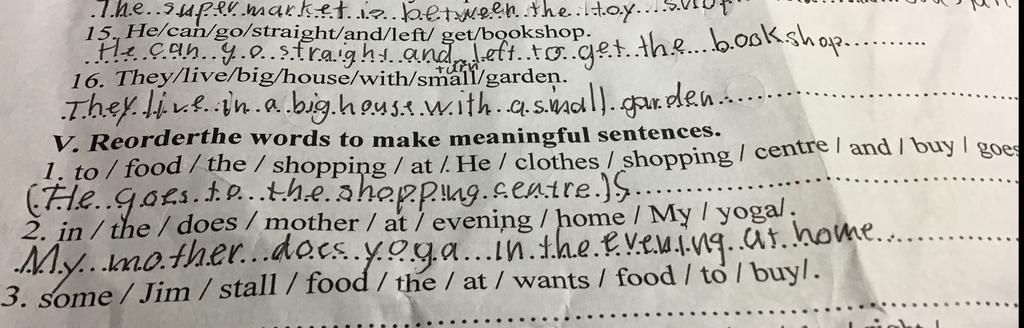 The supermarket is between the toy
15. He/can/go/straight/and/left/ get/bookshop.
He can go straight and turn left to get the bookshop
16. They/live/big/house/with/small/garden.
They live in a big house with a small garden
V. Reorderthe words to make meaningful sentences.
1. to / food / the / shopping / at / He / clothes / shopping / centre / and / buy / goes
(He goes to the shopping centre)
2. in / the / does / mother / at / evening / home / My / yoga/.
My mother does yoga in the evening at home
3. some / Jim / stall / food / the / at / wants / food / to / buy/.